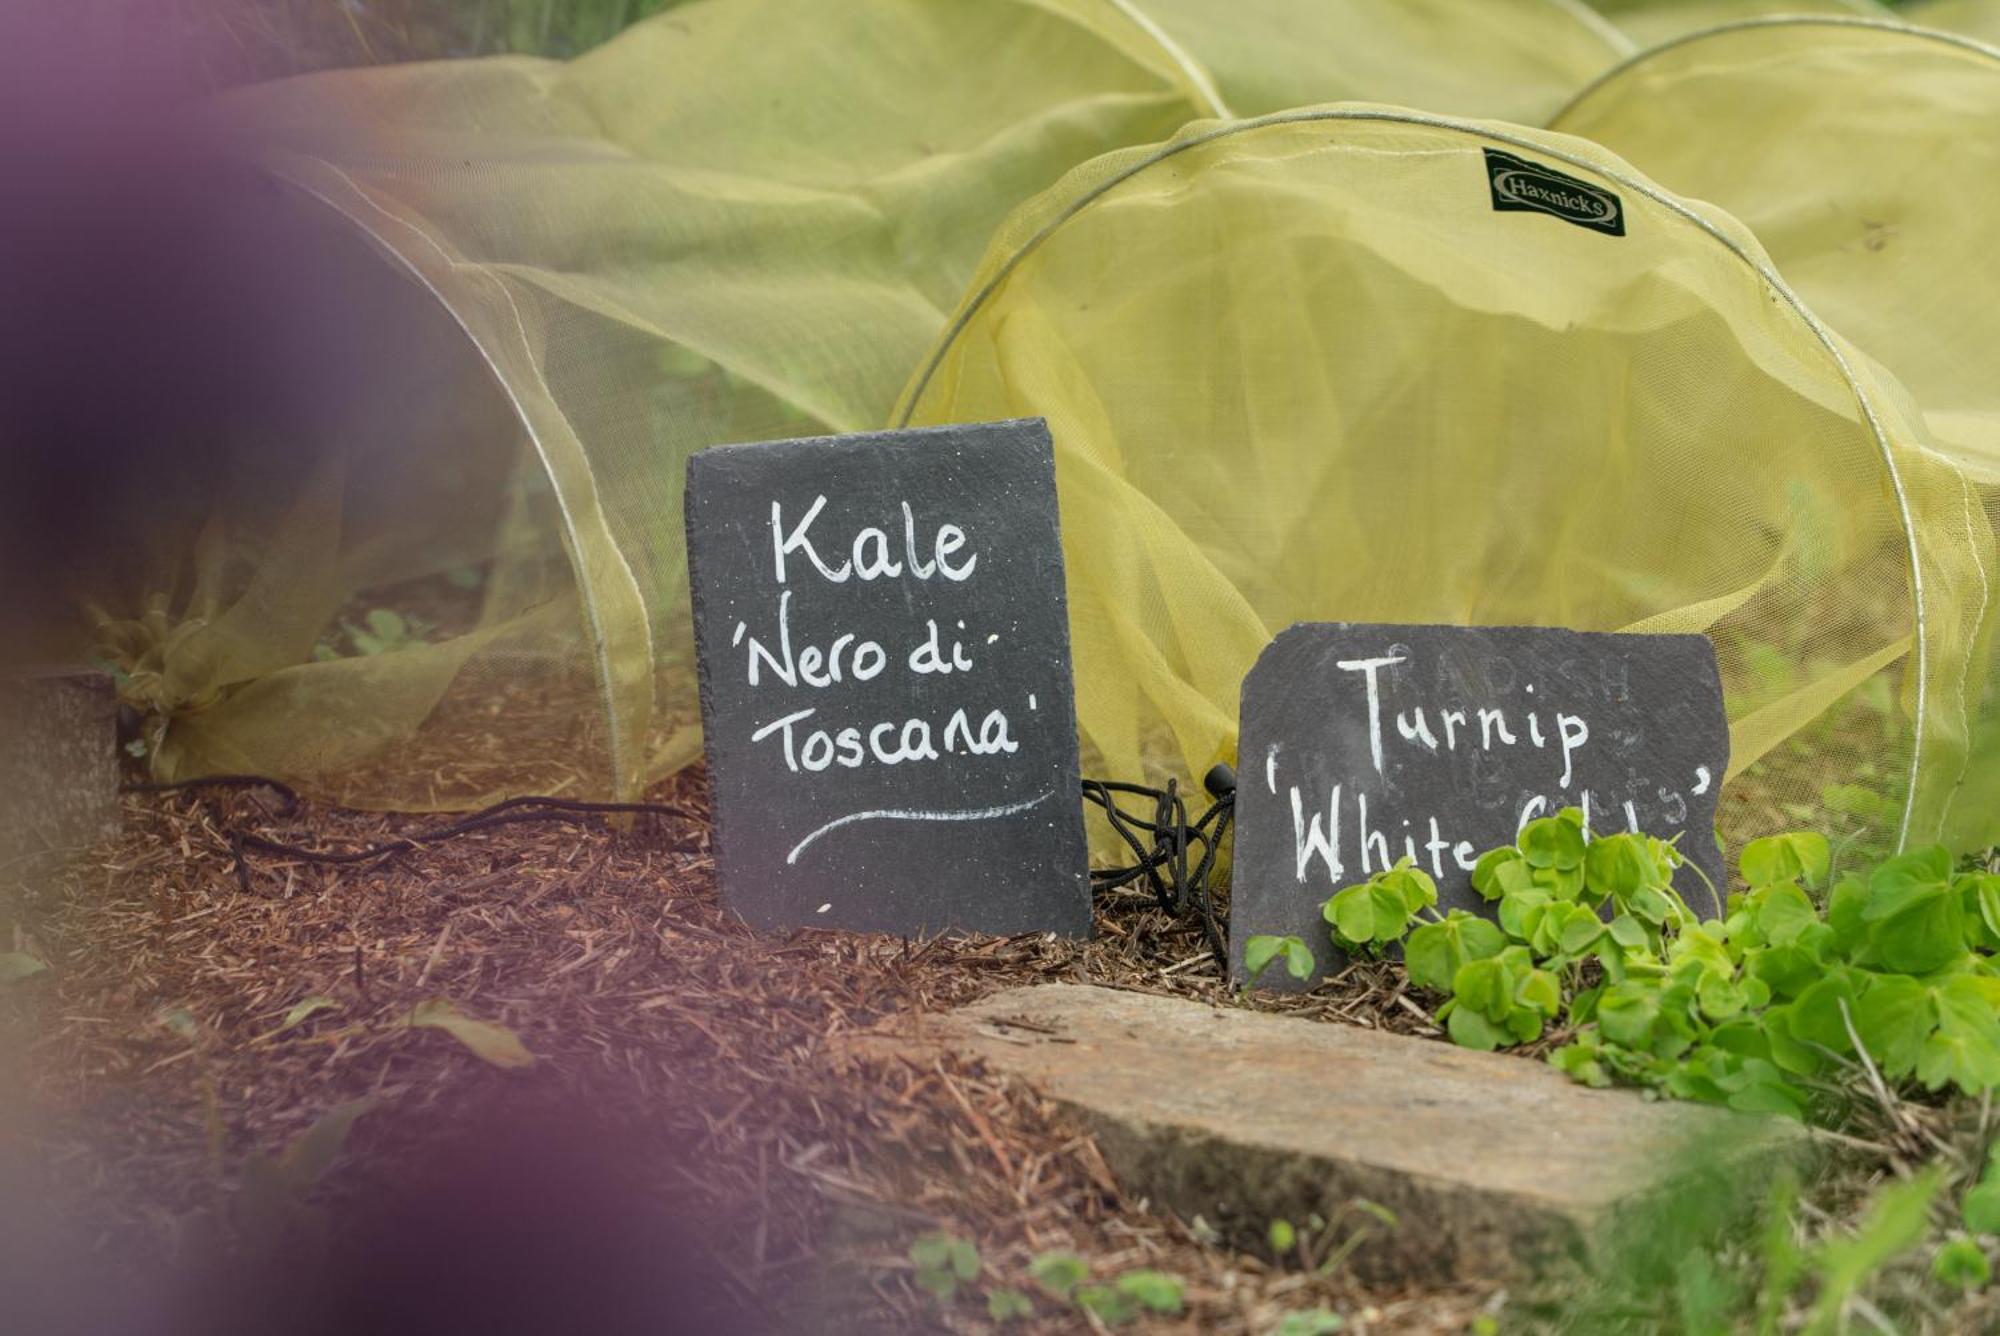 Haxnicks
Kale
'Nero di
Toscana'
RADISH
Turnip
'White